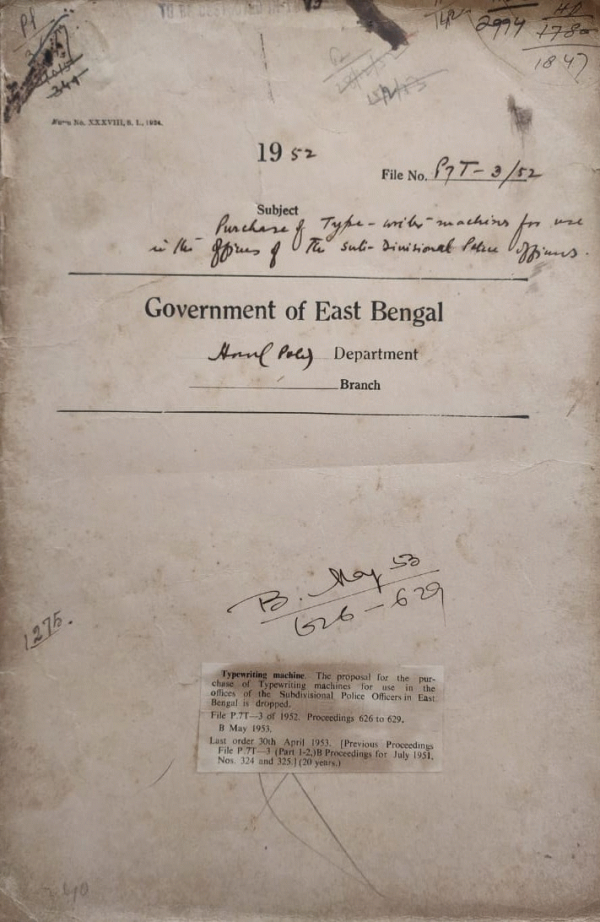 P1
2994
40
1780
1847
Form No. XXXVIII, S. I., 1934.
1952
File No. P7T-3/52
Subject
Purchase of Type-writer machines for use
in the offices of the Sub-Divisional Police Officers.
Government of East Bengal
Home (Police) Department
Branch
B. May 53
626-629
1275.
Typewriting machine. The proposal for the pur-
chase of Typewriting machines for use in the
offices of the Subdivisional Police Officers in East
Bengal is dropped.
File P.7T—3 of 1952. Proceedings 626 to 629.
B May 1953.
Last order 30th April 1953. [Previous Proceedings
File P.7T—3 (Part 1-2,)B Proceedings for July 1951,
Nos. 324 and 325.] (20 years.)